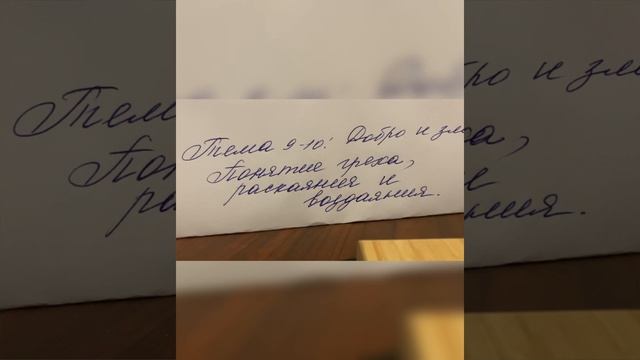 Тема 9-10: Добро и зло,
Понятие греха,
раскаяния и
воздаяния.